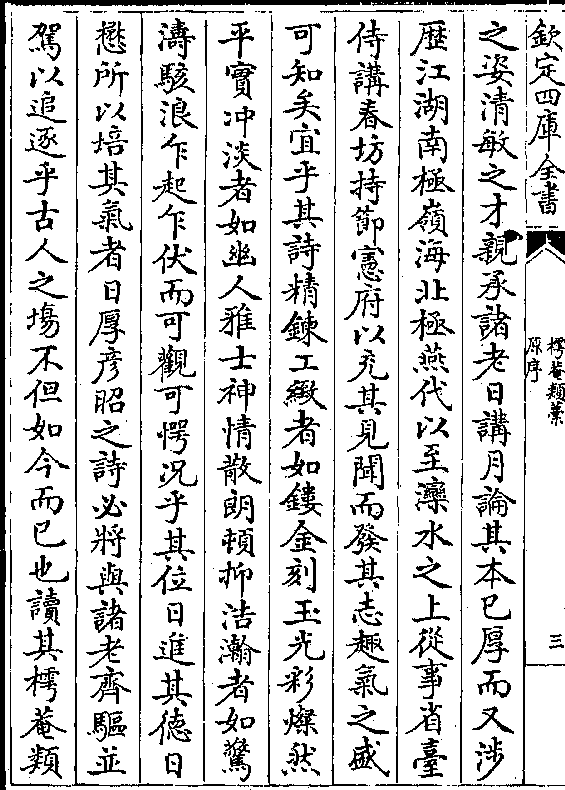 欽定四庫全書
樗菴類藁
原序
三
之姿清敏之才親承諸老日講月論其本已厚而又涉
歴江湖南極嶺海北極燕代以至灤水之上從事省臺
侍講春坊持節憲府以充其見聞而發其志趣氣之盛
可知矣宜乎其詩精鍊工緻者如鏤金刻玉光彩燦然
平實冲淡者如幽人雅士神情散朗頓抑浩瀚者如驚
濤駭浪乍起乍伏而可觀可愕况乎其位日進其徳日
懋所以培其氣者日厚彦昭之詩必將與諸老齊驅並
駕以追逐乎古人之塲不但如今而已也讀其樗菴類